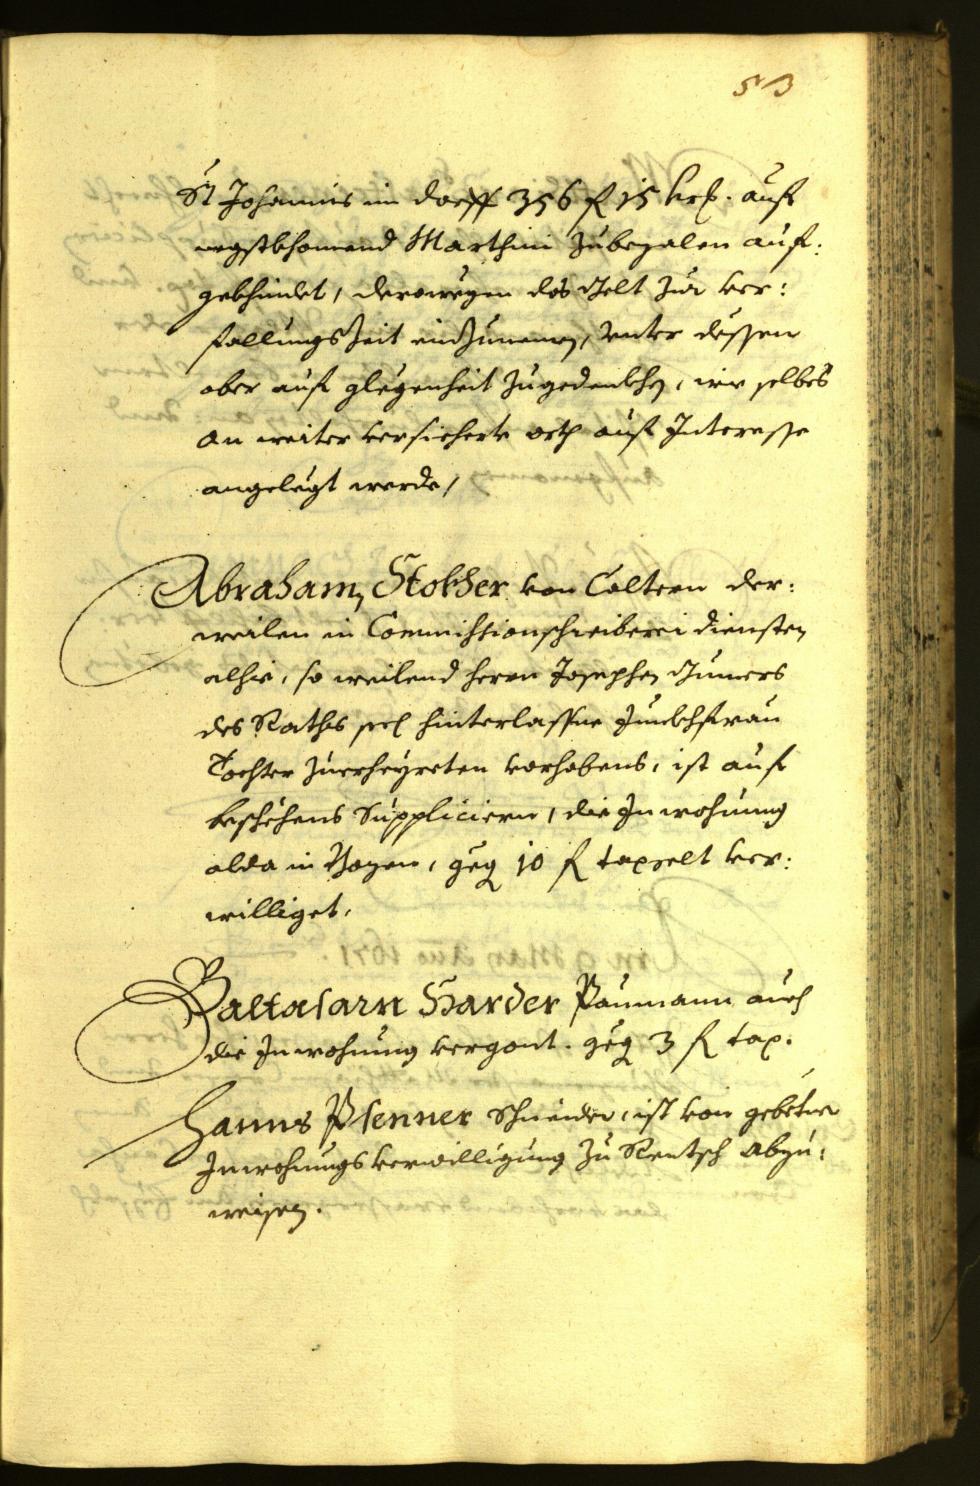 53
St Johannis im dorff 356 f 15 krz. auf
negstkhomend Marthini zubezalen auf:
gekhindet, derowegen das Gelt zur ver:
fallungs Zeit einzunemen, Unter dessen
aber auf glegenheit zugedenkhen, wie selbes
an weiter versicherte orth auf Interesse
angelegt werde,
Abraham Stokher von Caltern der:
weilen in Commihsionschreiberei diensten
alhie, so weilend herrn Josephen
des Raths seel hinterlassne Junckhfrau
Tochter zuerheyreten vorhabens, ist auf
beschehens Suppliciern, die Inwohnung
alda in Bozen, geg 10 f taxgelt ver:
williget.
Baltasarn Harder Paumann auch
die Inwohnung vergont. geg 3 f tax.
Hanns Psenner Schneider, ist von gebetner
Inwohnungs verwilligung zu Rentsch abzu:
weisen.